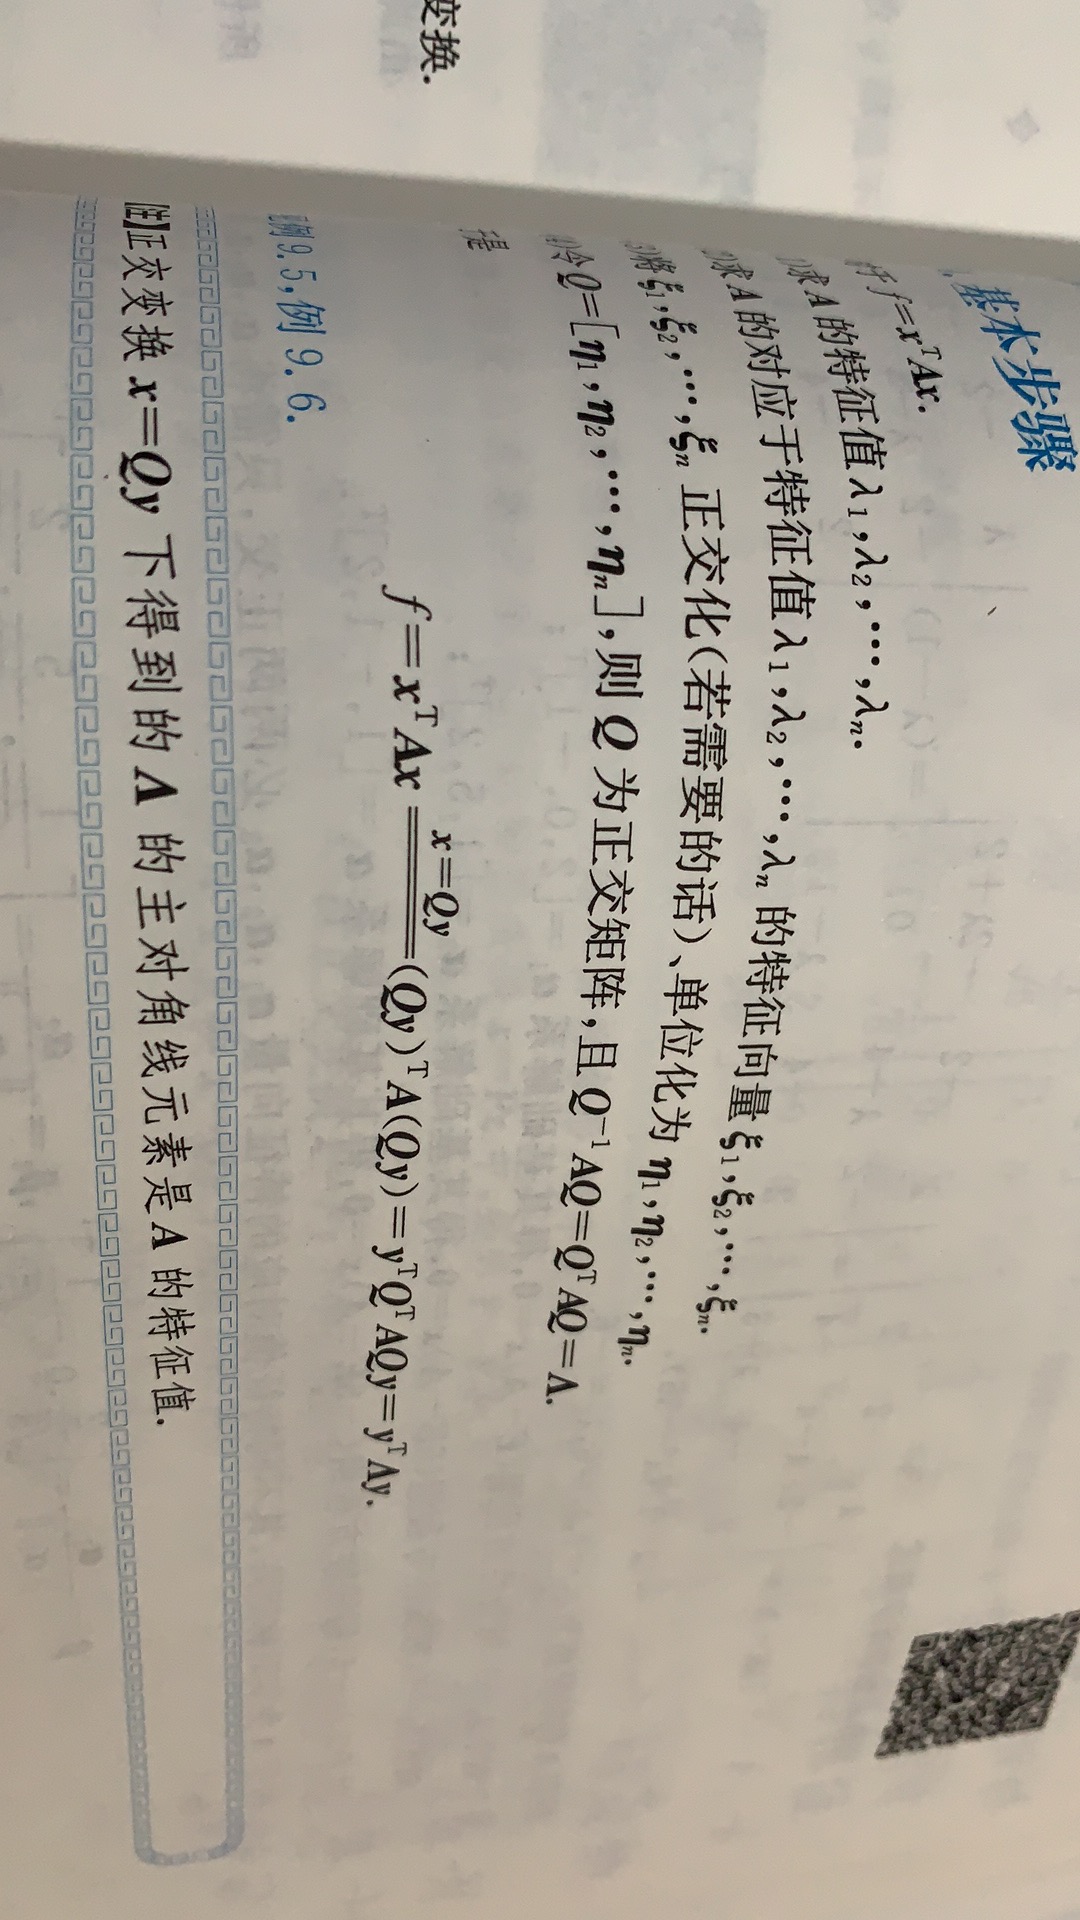 变换.
基本步骤
f=xᵀAx.
求 A 的特征值 λ₁,λ₂,…,λₙ.
求 A 的对应于特征值 λ₁,λ₂,…,λₙ 的特征向量 ξ₁,ξ₂,…,ξₙ.
将 ξ₁,ξ₂,…,ξₙ 正交化(若需要的话)、单位化为 η₁,η₂,…,ηₙ.
令 Q=[η₁,η₂,…,ηₙ],则 Q 为正交矩阵,且 Q⁻¹AQ=QᵀAQ=Λ.
f=xᵀAx \xlongequal{x=Qy} (Qy)ᵀA(Qy)=yᵀQᵀAQy=yᵀΛy.
例 9.5,例 9.6.
【注】正交变换 x=Qy 下得到的 Λ 的主对角线元素是 A 的特征值.